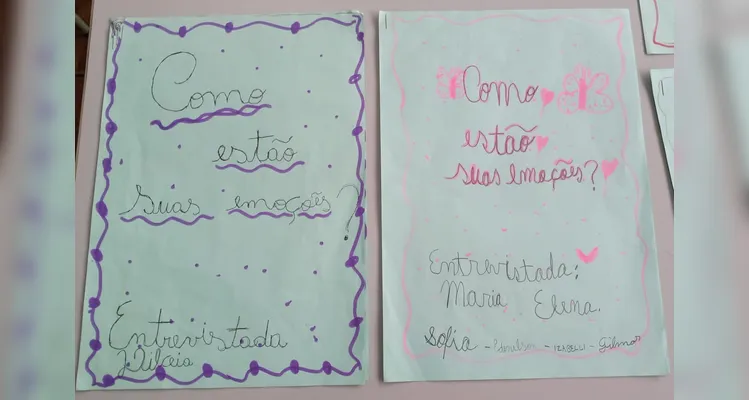 Como
estão
suas emoções?
Entrevistada
Como
estão
suas emoções?
Entrevistada:
Maria Elena.
Sofia - - - Gilmar